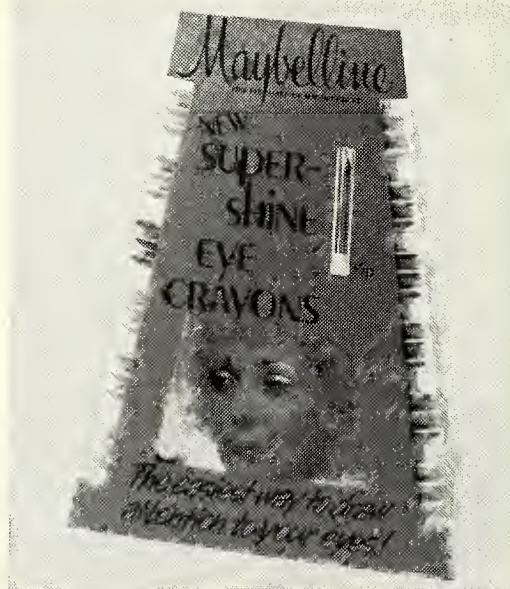 Maybelline
NEW
SUPER-
SHINE
EYE
CRAYONS
The easiest way to draw
attention to your eyes!